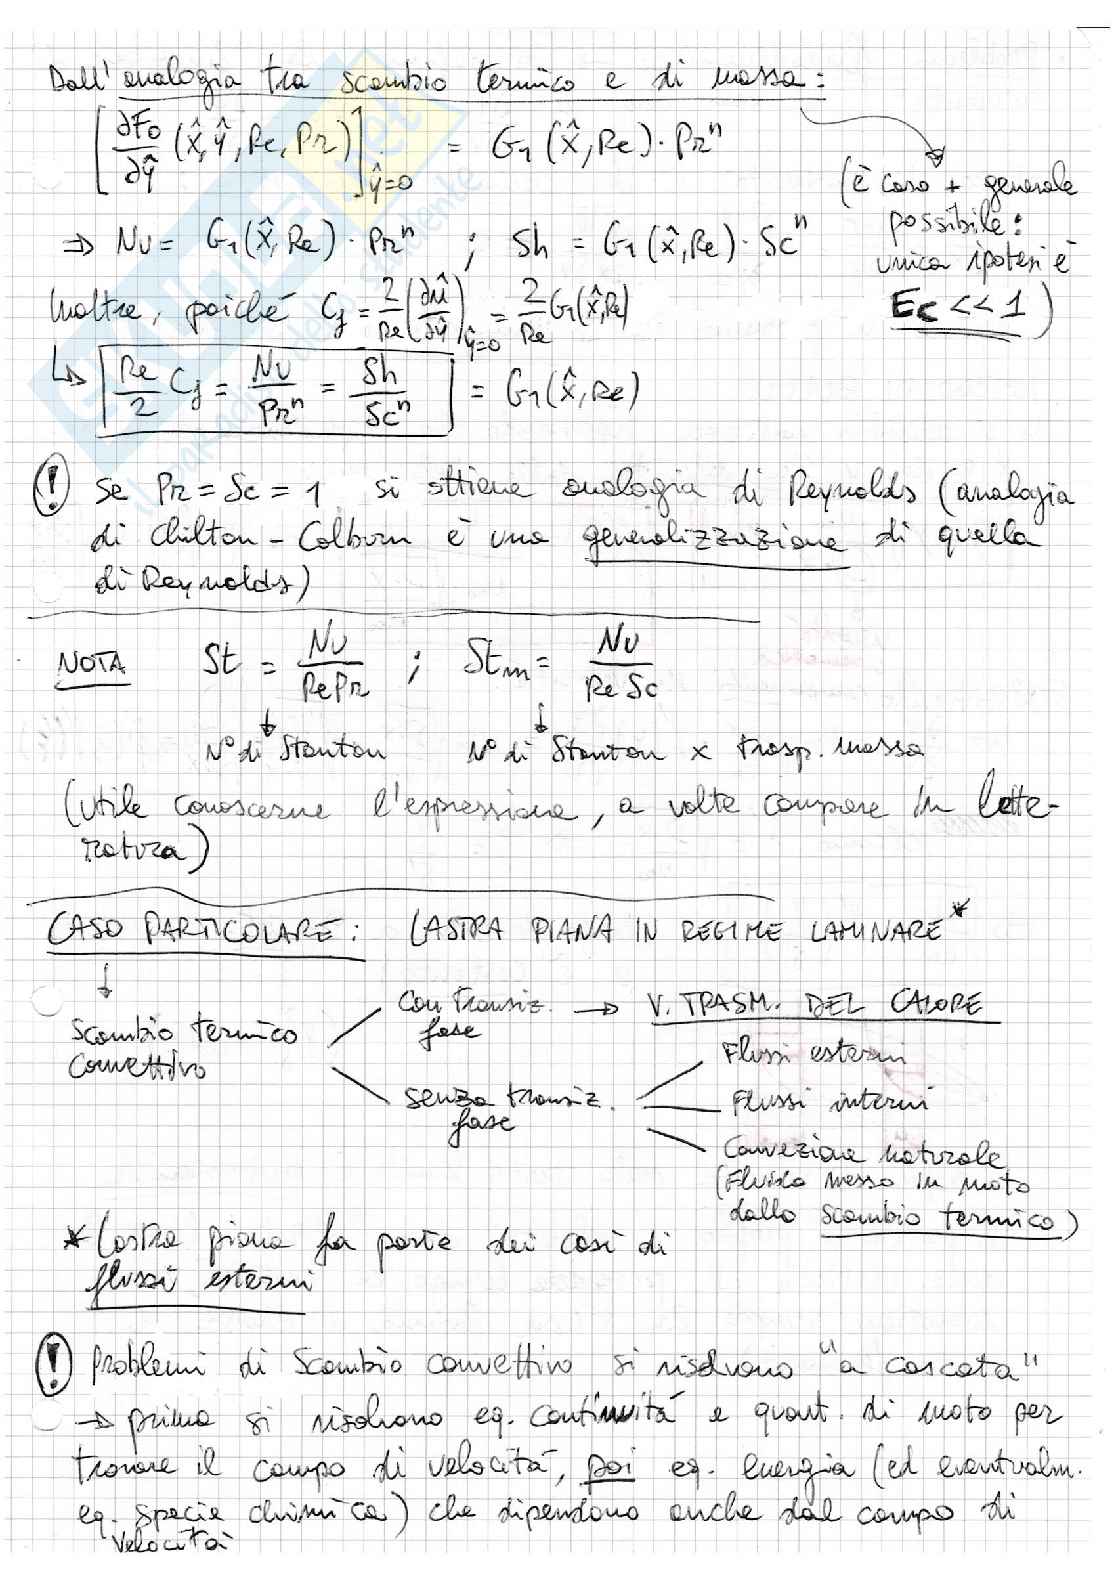 Dall'analogia tra scambio termico e di massa:
[∂F₀/∂ŷ (x̂, ŷ, Re, Pr)]ŷ=0 = G₁(x̂, Re)·Prⁿ
(è caso + generale
possibile:
unica ipotesi è
Ec << 1)
⇒ Nu = G₁(x̂, Re)·Prⁿ ; Sh = G₁(x̂, Re)·Scⁿ
Inoltre, poiché Cf = 2/Re (∂û/∂ŷ)ŷ=0 = 2/Re G₁(x̂,Re)
↳ Re/2 Cf = Nu/Prⁿ = Sh/Scⁿ = G₁(x̂, Re)
! Se Pr = Sc = 1 si ottiene analogia di Reynolds (analogia
di Chilton-Colburn è una generalizzazione di quella
di Reynolds)
NOTA St = Nu/RePr ; Stm = Nu/Re Sc
↓ ↓
N° di Stanton N° di Stanton x trasp. massa
(utile conoscerne l'espressione, a volte compare in lette-
ratura)
CASO PARTICOLARE: LASTRA PIANA IN REGIME LAMINARE*
↓
Scambio termico
Convettivo
Con transiz. → V. TRASM. DEL CALORE
fase
senza transiz.
fase
Flussi esterni
Flussi interni
Convezione naturale
(Fluido messo in moto
dallo scambio termico)
* Lastra piana fa parte dei casi di
flussi esterni
! Problemi di Scambio convettivo si risolvono "a cascata"
→ prima si risolvono eq. continuità e quant. di moto per
trovare il campo di velocità, poi eq. energia (ed eventualm.
eq. specie chimica) che dipendono anche dal campo di
velocità